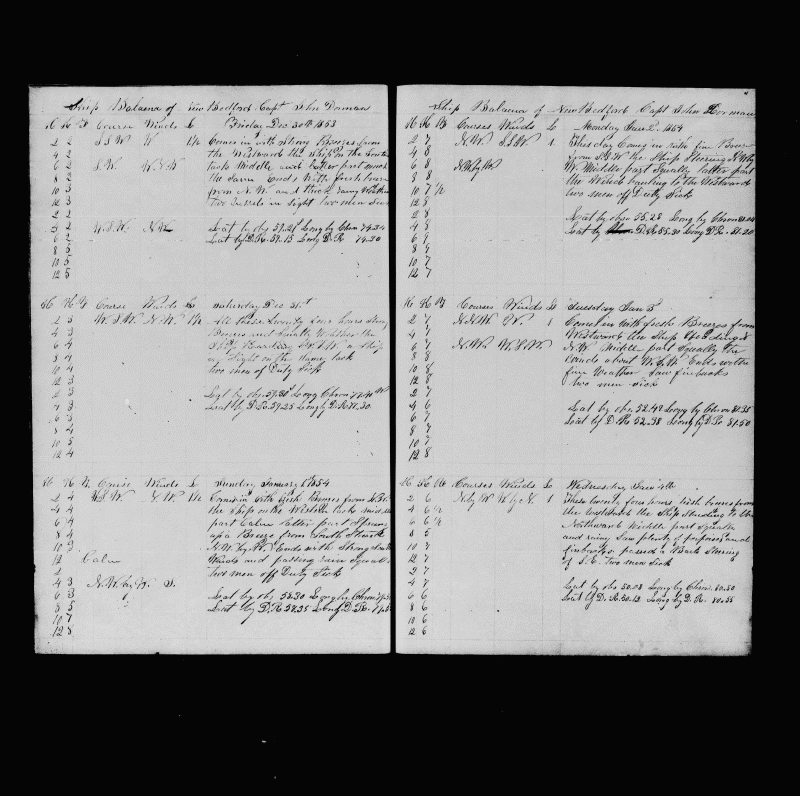 Ship Balaena of New Bedford Capt John Dorman
H K F Course Winds L Friday Dec 30th 1853
2 2 S.S.W W Comes in with Strong Breezes from
4 2 the Westward the Ship on the
6 2 S.W. tack Middle and latter part much
8 2 the same Ends with fresh
10 3 from N.W. and thick rainy Weather
12 3 two Sails in sight two men sick
2 2
4 2 W.S.W N.W. Lat by obs 59.21 Long by Chron 74.34
6 2 Lat by D.R. 59.13 Long D.R 74.30
8 5
10 5
12 5
H K F Course Winds L Saturday Dec 31st
2 3 W.S.W N.W. All these twenty four hours strong
4 3 Breezes and Squally Weather the
6 3 Ship heading W.S.W. a Ship
8 4 in Sight on the same tack
10 4 two men off Duty Sick
12 3
2 3 Lat by obs 59.31 Long by Chron
4 3 Lat by D.R. 59.25 Long by D.R
6 3
8 4
10 5
12 4
H K F Course Winds L Sunday January 1 1854
2 4 W.S.W N.W. Comes in with fresh Breezes from
4 4 the Ship on the Western tack middle
6 4 part Calm latter part Springs
8 4 up a Breeze from South Steers
10 3 N.W. by W. Ends with Strong
12 Calm Winds and passing rain Squalls
2 two men off Duty Sick
4 3 N.W. by W. S.
6 3 Lat by obs 58.30 Long by Chron
8 5 Lat by D.R. 58.35 Long D.R.
10 7
12 8
Ship Balaena of New Bedford Capt John Dorman
H K F Courses Winds L Monday Jan 2d 1854
2 7 N.W. S.S.W 1 This day Comes in with fine Breeze
4 8 from S.S.W the Ship Steering N.W by
6 8 N.W by W. W. Middle part Squally latter part
8 8 the Winds hauling to the Westward
10 7 1/2 two men off Duty Sick
12 8
2 8 Lat by obs 55.28 Long by Chron
4 8 Lat by D.R. 55.30 Long D.R. 81.20
6 7
8 7
10 7
12 7
H K F Courses Winds L Tuesday Jan 3
2 7 N.N.W W. 1 Comes in with fresh Breezes from
4 7 Westward the Ship Steering
6 7 N.W. W.S.W. N.W. Middle part Squally the
8 8 winds about W.S.W. Ends with
10 8 fine Weather Saw finbacks
12 8 two men sick
2 7
4 6 Lat by obs 52.49 Long by Chron 81.35
6 7 Lat by D.R 52.38 Long by D.R 81.50
8 7
10 7
12 8
H K F Courses Winds L Wednesday Jan 4th
2 6 N by W W by N. 1 These twenty four hours fresh breezes from
4 6 1/2 the westward the Ship Standing to the
6 6 1/2 Northward Middle part Squally
8 5 and rainy Saw plenty of porpoises and
10 7 finbacks passed a Bark Steering
12 7 S.E. two men Sick
2 7
4 7 Lat by obs 50.08 Long by Chron 80.50
6 6 Lat by D.R. 50.12 Long by D.R. 80.55
8 6
10 6
12 6